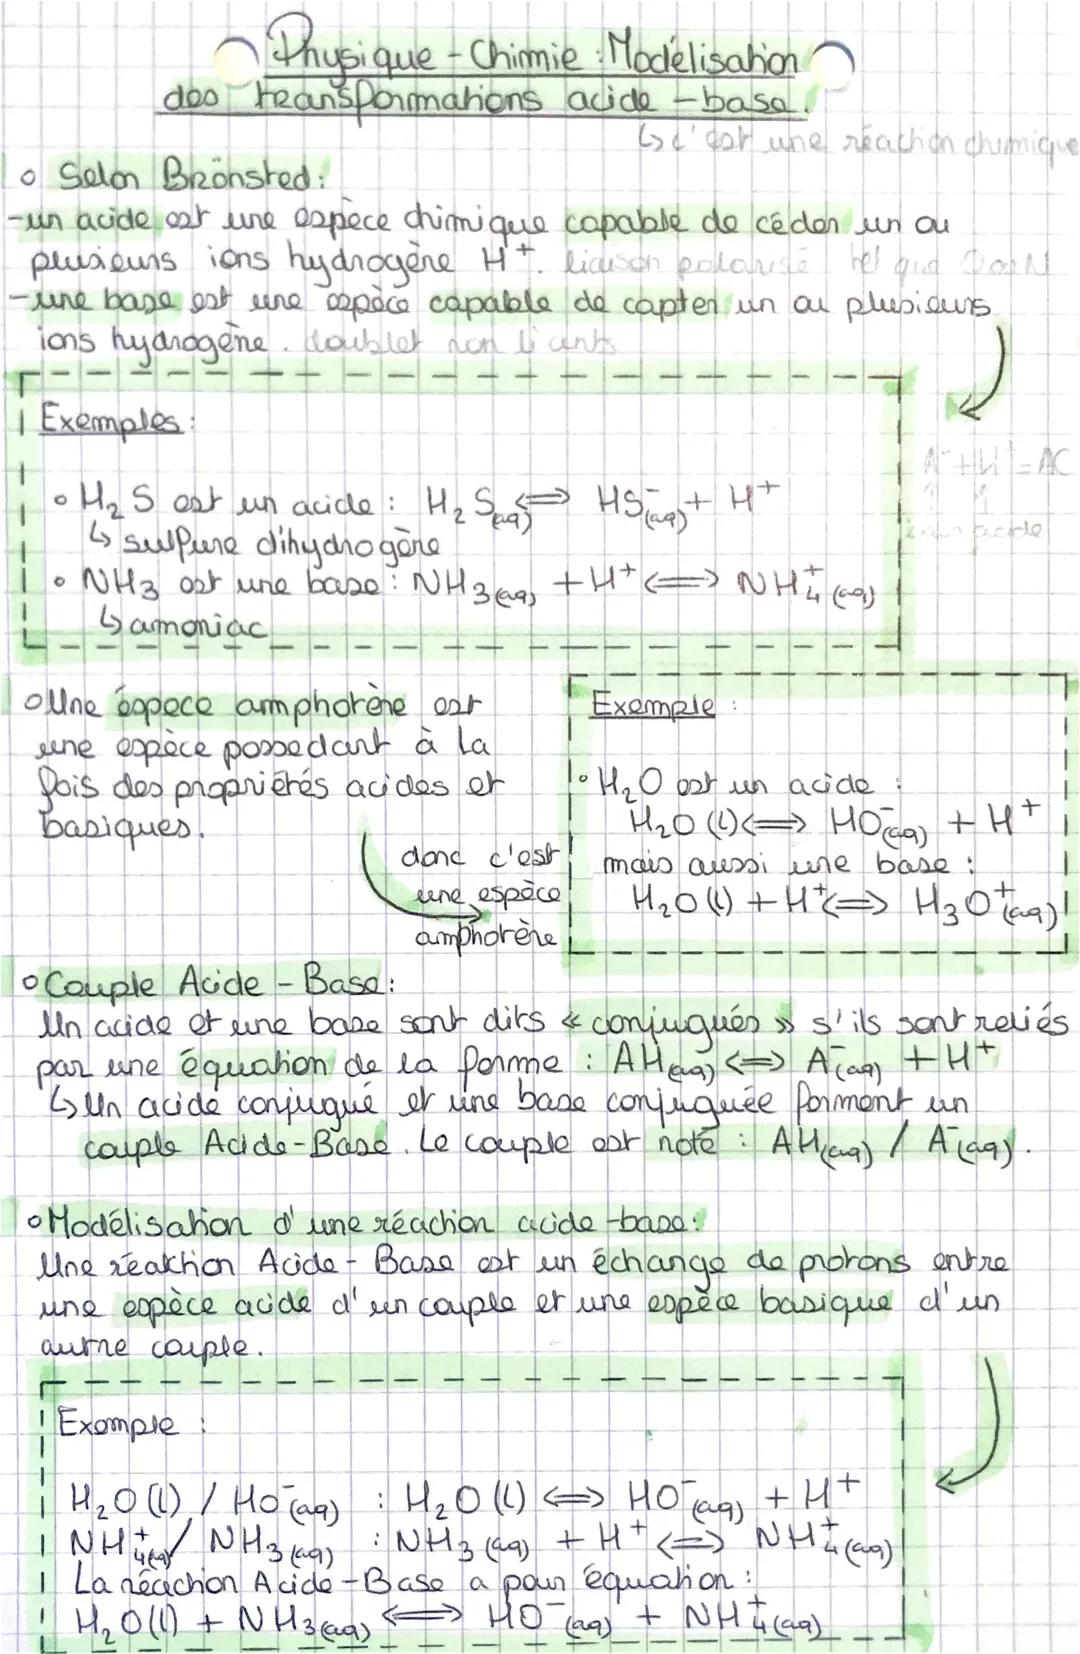 Physique - Chimie : Modélisation
des transformations acide - base.
↳ c'est une réaction chimique
• Selon Brönsted :
- un acide est une espèce chimique capable de céder un ou
plusieurs ions hydrogène H⁺. liaison polarisé tel que O ou N
- une base est une espèce capable de capter un ou plusieurs
ions hydrogène. doublet non liants
Exemples :
A⁻ + H⁺ = AC
• H₂S est un acide : H₂S(aq) ⇌ HS⁻(aq) + H⁺
↳ sulfure dihydrogène
• NH₃ est une base : NH₃(aq) + H⁺ ⇌ NH₄⁺(aq)
↳ amoniac
• Une éspece amphotère est
une espèce possedant à la
fois des propriétés acides et
basiques.
donc c'est
une espèce
amphotère
Exemple :
• H₂O est un acide :
H₂O (l) ⇌ HO⁻(aq) + H⁺
mais aussi une base :
H₂O (l) + H⁺ ⇌ H₃O⁺(aq)
• Couple Acide - Base :
Un acide et une base sont dits « conjugués » s'ils sont reliés
par une équation de la forme : AH(aq) ⇌ A⁻(aq) + H⁺
↳ Un acide conjugué et une base conjuguée forment un
couple Acide-Base. Le couple est noté : AH(aq) / A⁻(aq).
• Modélisation d'une réaction acide-base :
Une réaktion Acide - Base est un échange de protons entre
une espèce acide d'un couple et une espèce basique d'un
autre couple.
Exemple :
H₂O (l) / HO⁻(aq) : H₂O (l) ⇌ HO⁻(aq) + H⁺
NH₄⁺(aq) / NH₃(aq) : NH₃(aq) + H⁺ ⇌ NH₄⁺(aq)
La réaction Acide-Base a pour équation :
H₂O(l) + NH₃(aq) ⇌ HO⁻(aq) + NH₄⁺(aq)